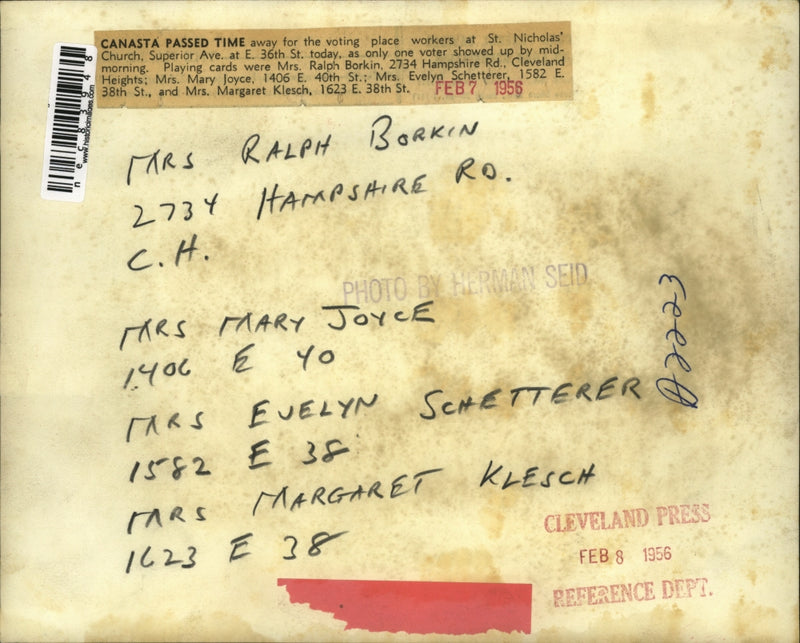 CANASTA PASSED TIME away for the voting place workers at St. Nicholas'
Church, Superior Ave. at E. 36th St. today, as only one voter showed up by mid-
morning. Playing cards were Mrs. Ralph Borkin, 2734 Hampshire Rd., Cleveland
Heights; Mrs. Mary Joyce, 1406 E. 40th St.; Mrs. Evelyn Schetterer, 1582 E.
38th St., and Mrs. Margaret Klesch, 1623 E. 38th St.
FEB 7 1956
nec83948
www.historicimages.com
MRS RALPH BORKIN
2734 HAMPSHIRE RD.
C.H.
PHOTO BY HERMAN SEID
MRS MARY JOYCE
1406 E 40
A2223
MRS EVELYN SCHETTERER
1582 E 38
MRS MARGARET KLESCH
1623 E 38
CLEVELAND PRESS
FEB 8 1956
REFERENCE DEPT.